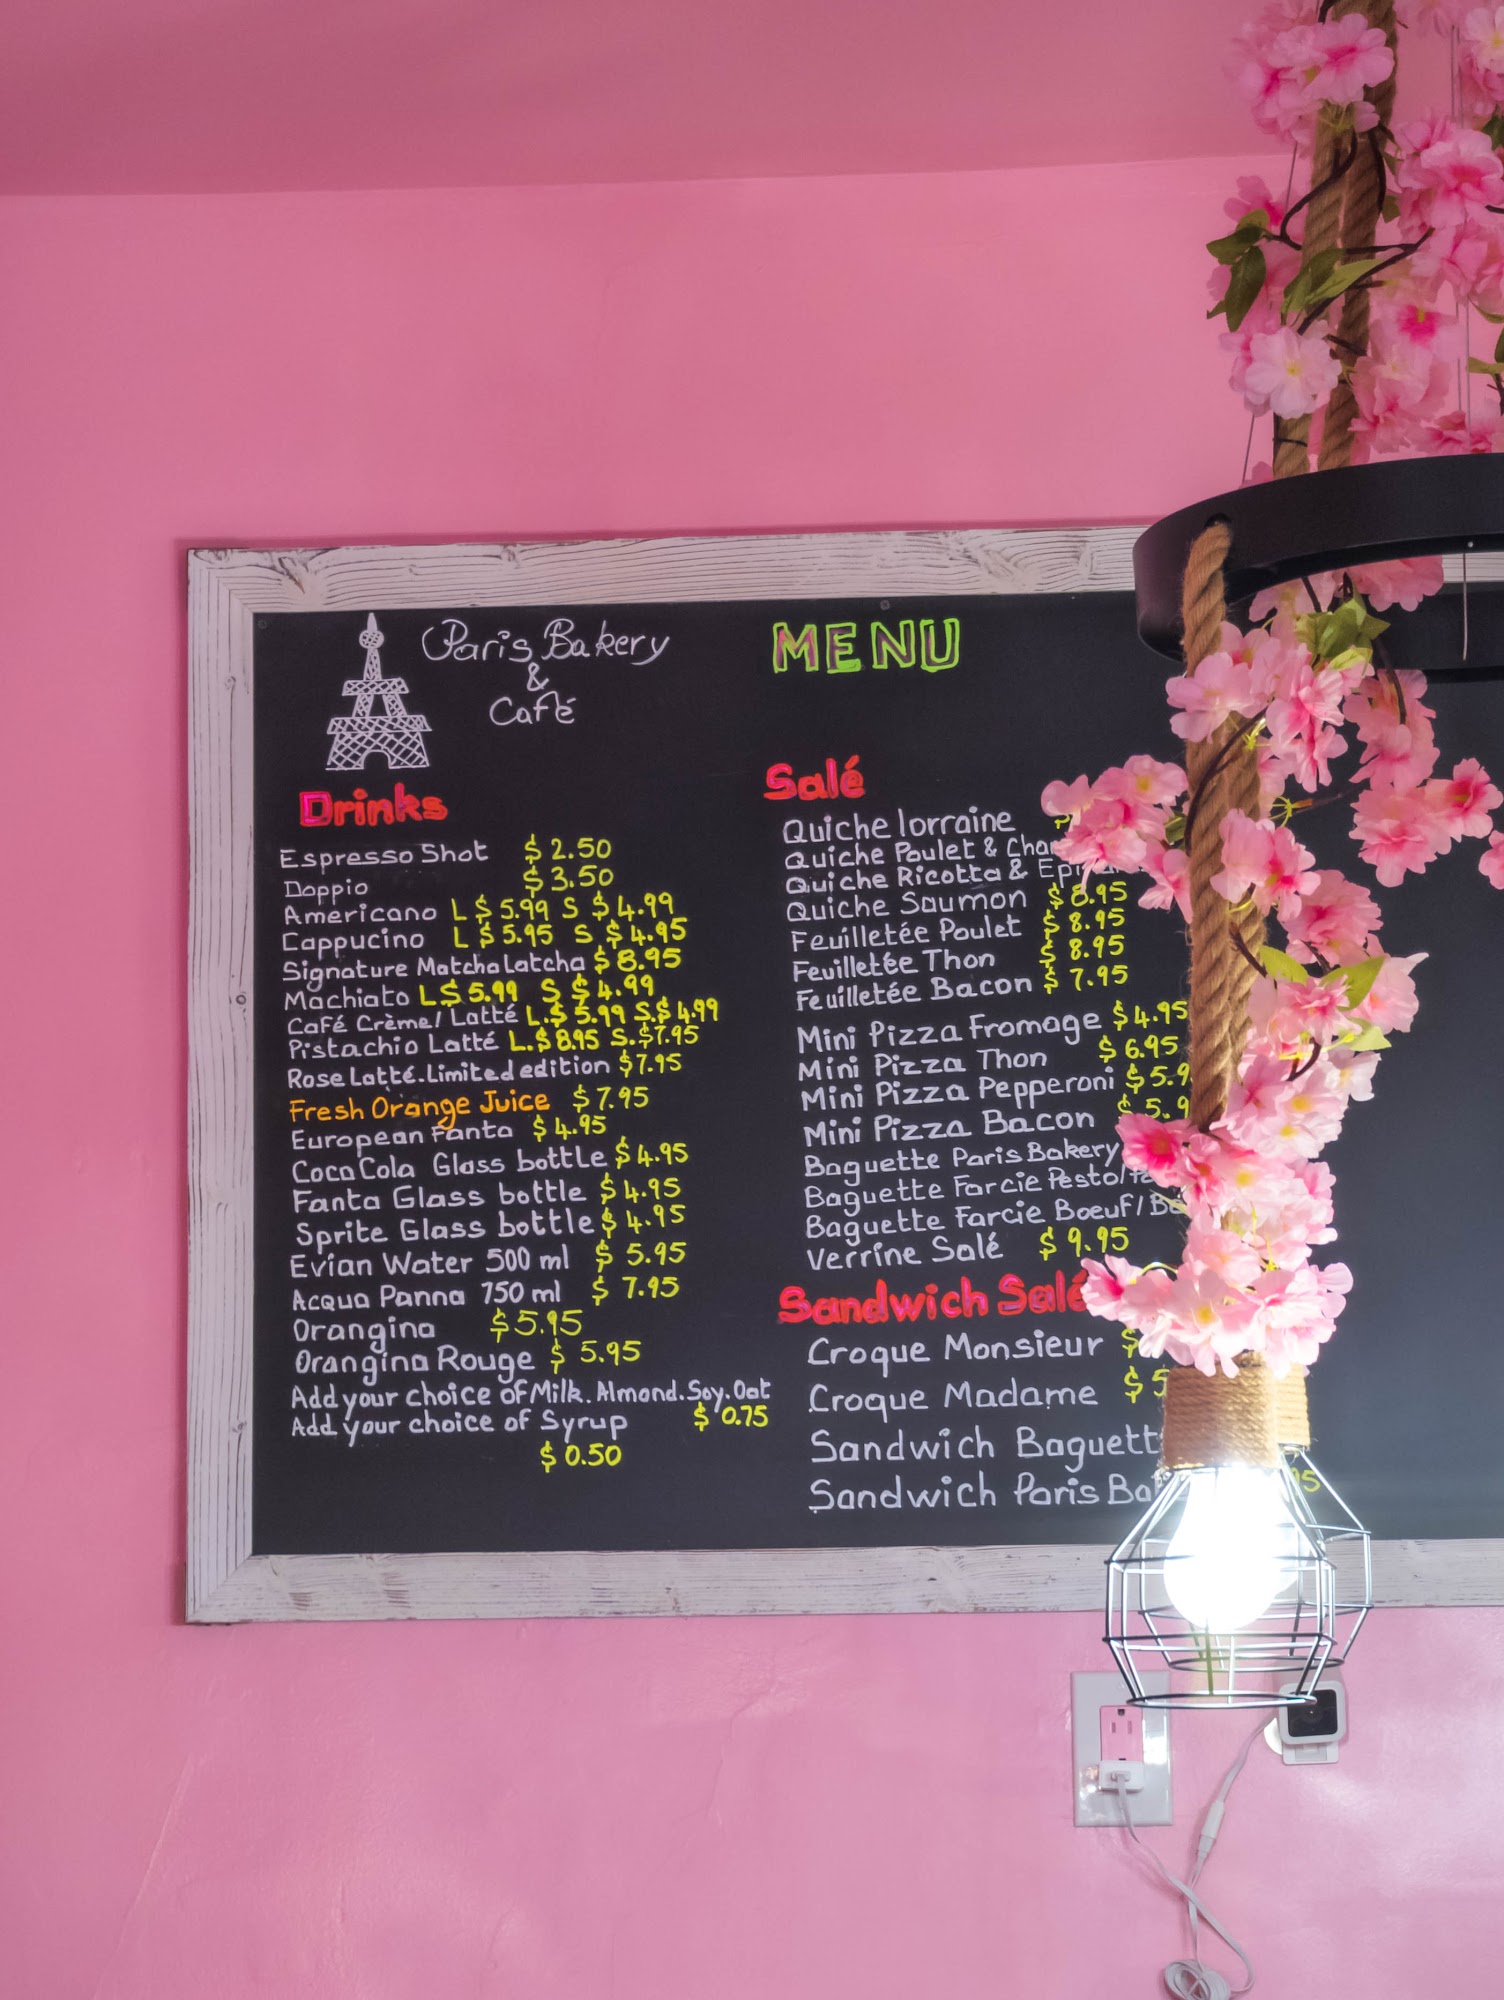 Paris Bakery
&
Café
MENU
Drinks
Espresso Shot $ 2.50
Doppio $ 3.50
Americano L $ 5.99 S $ 4.99
Cappucino L $ 5.95 S $ 4.95
Signature Matcha Latcha $ 8.95
Machiato L $ 5.99 S $ 4.99
Café Crème/ Latté L.$ 5.99 S.$ 4.99
Pistachio Latté L.$ 8.95 S.$ 7.95
Rose Latté.Limited edition $ 7.95
Fresh Orange Juice $ 7.95
European Fanta $ 4.95
Coca Cola Glass bottle $ 4.95
Fanta Glass bottle $ 4.95
Sprite Glass bottle $ 4.95
Evian Water 500 ml $ 5.95
Acqua Panna 750 ml $ 7.95
Orangina $ 5.95
Orangina Rouge $ 5.95
Add your choice of Milk. Almond. Soy. Oat
Add your choice of Syrup $ 0.75
$ 0.50
Salé
Quiche lorraine
Quiche Poulet &
Quiche Ricotta &
Quiche Saumon $ 8.95
Feuilletée Poulet $ 8.95
Feuilletée Thon $ 8.95
Feuilletée Bacon $ 7.95
Mini Pizza Fromage $ 4.95
Mini Pizza Thon $ 6.95
Mini Pizza Pepperoni $ 5.9
Mini Pizza Bacon $ 5.9
Baguette Paris Bakery
Baguette Farcie Pesto/
Baguette Farcie Bœuf/
Verrine Salé $ 9.95
Sandwich Salé
Croque Monsieur $
Croque Madame $ 5
Sandwich Baguett
Sandwich Paris Ba